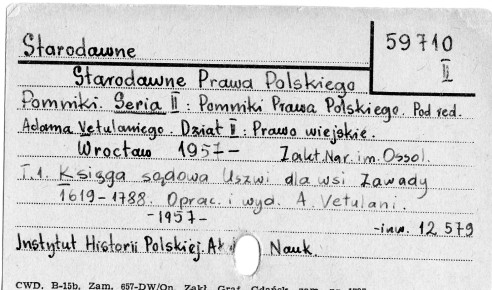 Starodawne
59710
II
Starodawne Prawa Polskiego
Pomniki. Seria II : Pomniki Prawa Polskiego. Pod red.
Adama Vetulaniego. Dział II : Prawo wiejskie.
Wrocław 1957- Zakł. Nar. im. Ossol.
T.1. Księga sądowa Uszwi dla wsi Zawady
1619-1788. Oprac. i wyd. A. Vetulani.
-1957-
-inw. 12 579
Instytut Historii Polskiej. Nauk
CWD. B-15b, Zam. 657-DW/On. Zakł. Graf. Gdańsk, zam.